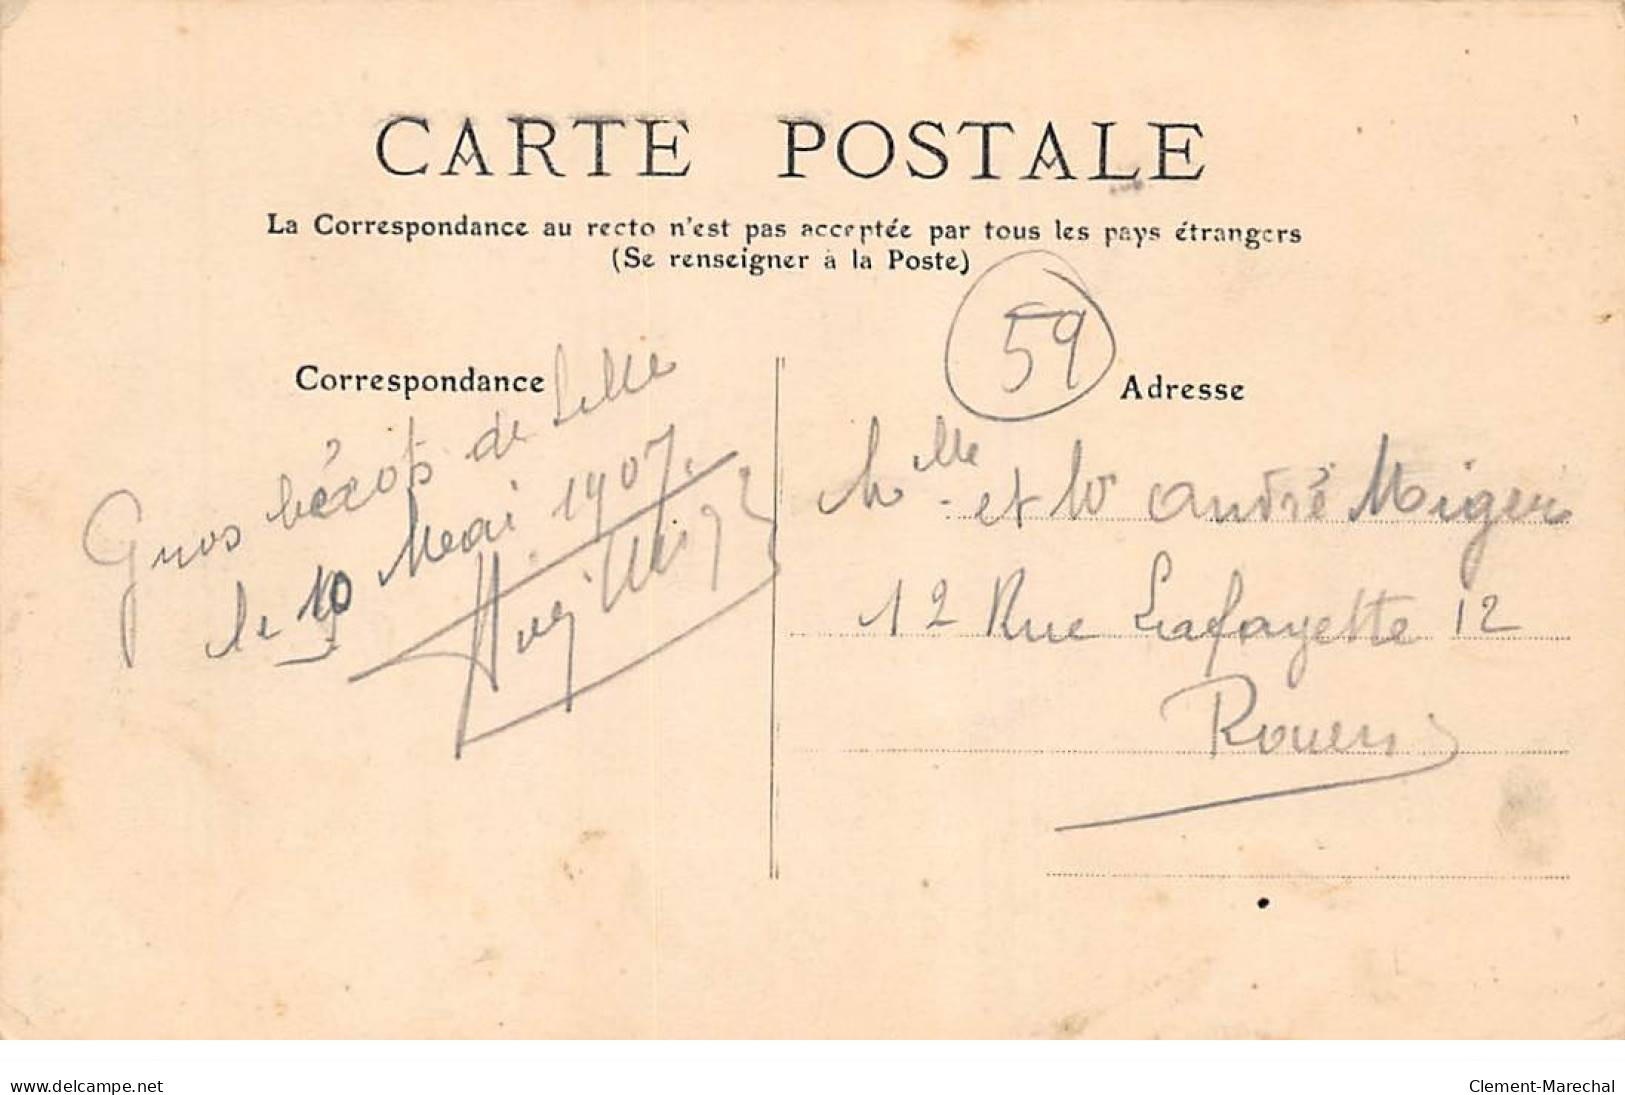 CARTE POSTALE
La Correspondance au recto n'est pas acceptée par tous les pays étrangers
(Se renseigner à la Poste)
59
Correspondance
Adresse
Gros bécots de Lille
le 10 Mai 1907.
Mlle et Mr André Miger
12 Rue Lafayette 12
Rouen
www.delcampe.net
Clement-Marechal